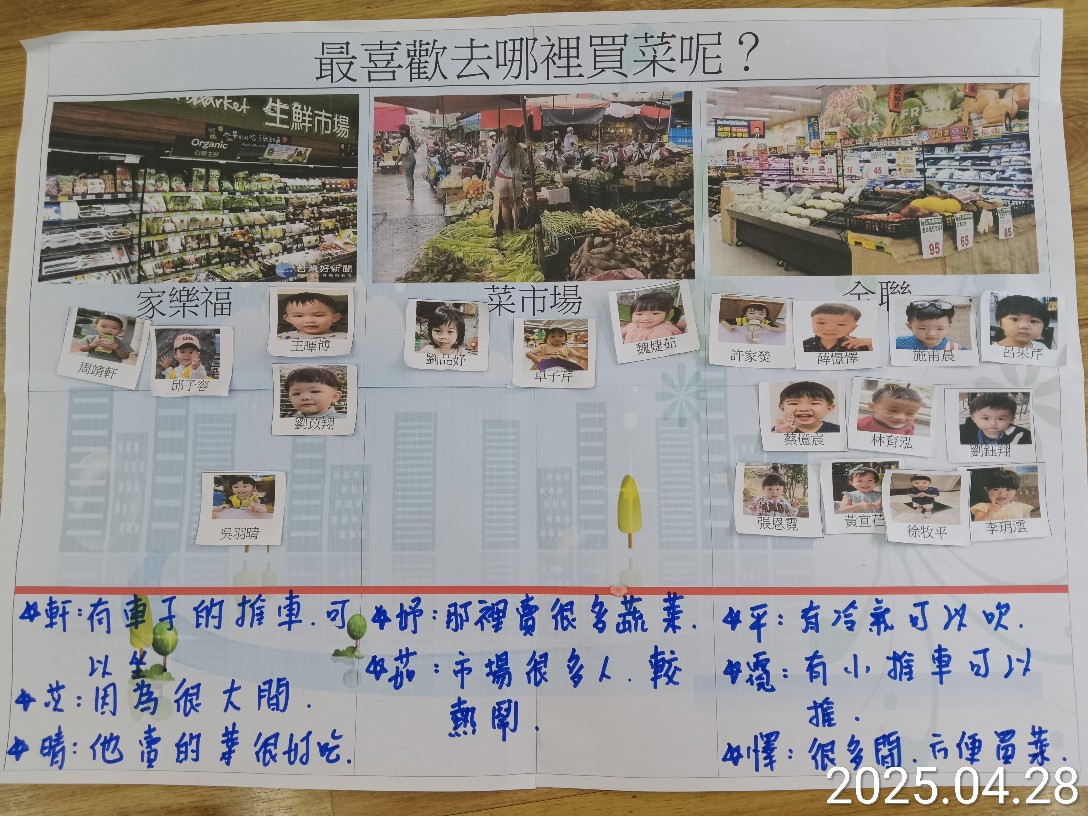 最喜歡去哪裡買菜呢？
Market 生鮮市場
Organic
台灣好新聞
95 65 85
家樂福
菜市場
全聯
周靖軒
邱子容
王暉博
劉政翔
吳羽晴
劉品妤
卓子芹
魏婕茹
許家熒
薛憬懌
施甯晨
呂采芹
蔡億宸
林育泓
劉鈺翔
張恩霓
黃宣
徐牧平
李玥澐
軒：有車子的推車.可
以坐
：因為很大間.
晴：他賣的菜很好吃.
妤：那裡賣很多蔬菜.
茹：市場很多人.較
熱鬧.
平：有冷氣可以吹.
霓：有小推車可以
推.
懌：很多間.方便買菜.
2025.04.28